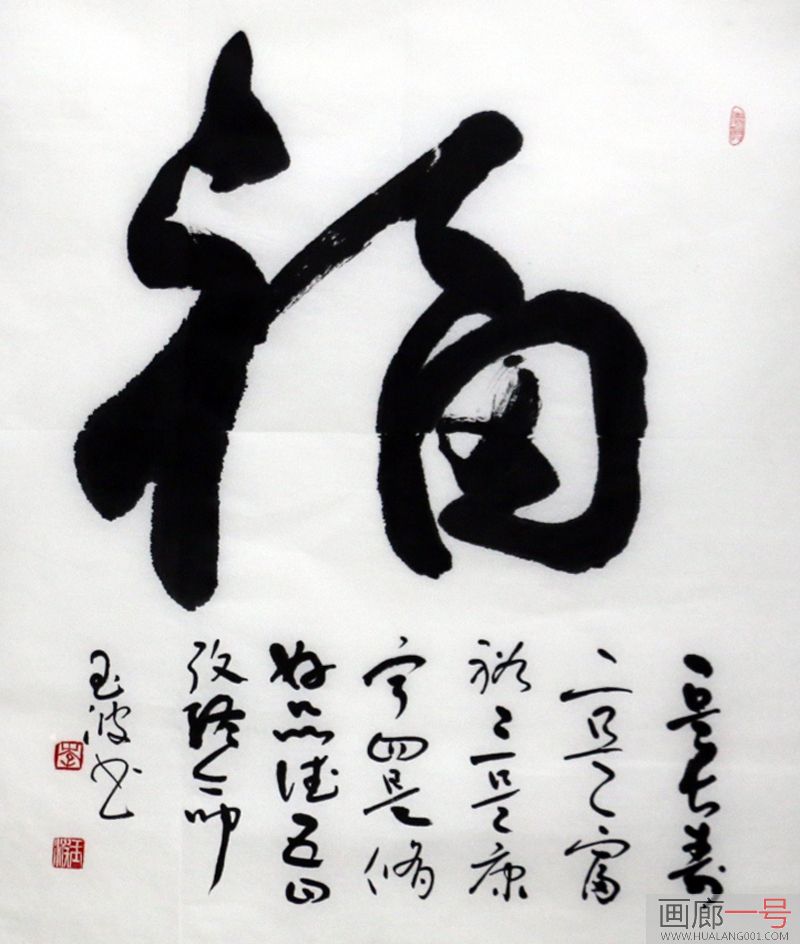 福
一是长寿
二是富
裕三是康
宁四是修
好品德五曰
攷终命
玉波书
画廊一号
WWW.HUALANG001.COM